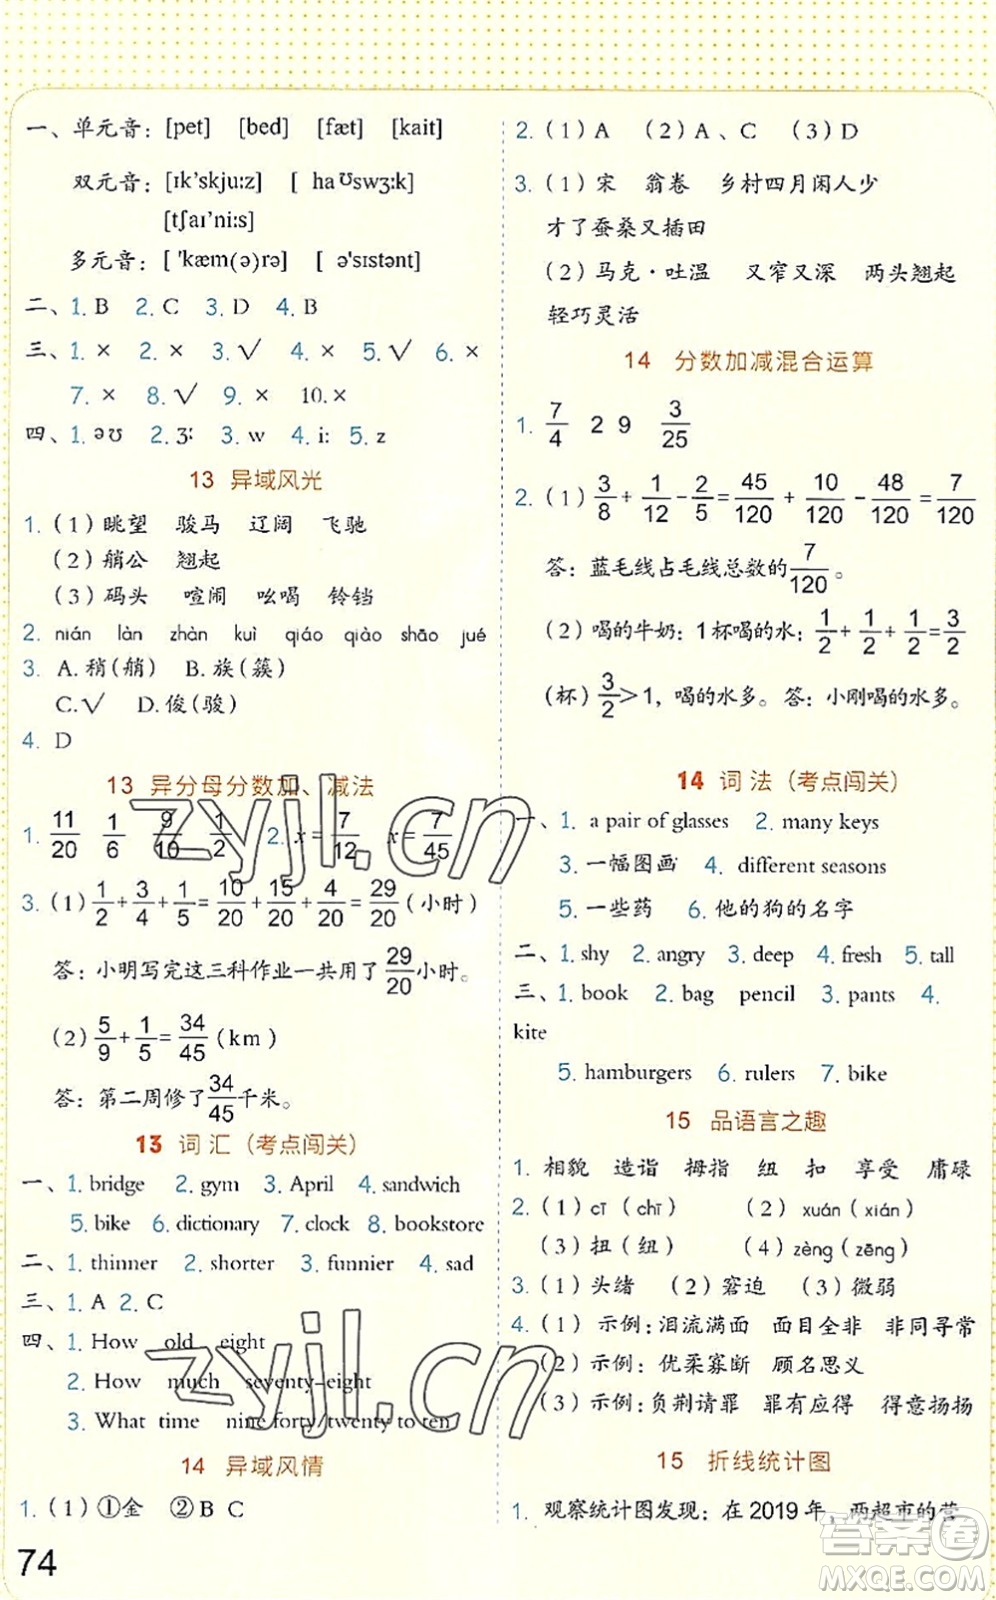 一、单元音：[pet] [bed] [fæt] [kait]
双元音：[ɪk'skju:z] [ haʊswɜ:k]
[tʃaɪ'ni:s]
多元音：[ 'kæm(ə)rə] [ ə'sɪstənt]
二、1. B 2. C 3. D 4. B
三、1. × 2. × 3. √ 4. × 5. √ 6. ×
7. × 8. √ 9. × 10. ×
四、1. əʊ 2. ʒ: 3. w 4. i: 5. z
13 异域风光
1.（1）眺望 骏马 辽阔 飞驰
（2）艄公 翘起
（3）码头 喧闹 吆喝 铃铛
2. nián làn zhàn kuì qiáo qiào shāo jué
3. A. 稍（艄） B. 族（簇）
C. √ D. 俊（骏）
4. D
13 异分母分数加、减法
1. 11/20 1/6 9/10 1/2 2. x=7/12 x=7/45
3.（1）1/2+3/4+1/5=10/20+15/20+4/20=29/20（小时）
答：小明写完这三科作业一共用了29/20小时。
（2）5/9+1/5=34/45（km）
答：第二周修了34/45千米。
13 词 汇（考点闯关）
一、1. bridge 2. gym 3. April 4. sandwich
5. bike 6. dictionary 7. clock 8. bookstore
二、1. thinner 2. shorter 3. funnier 4. sad
三、1. A 2. C
四、1. How old eight
2. How much seventy-eight
3. What time nine forty/twenty to ten
14 异域风情
1.（1）①金 ②B C
2.（1）A （2）A、C （3）D
3.（1）宋 翁卷 乡村四月闲人少
才了蚕桑又插田
（2）马克·吐温 又窄又深 两头翘起
轻巧灵活
14 分数加减混合运算
1. 7/4 2 9 3/25
2.（1）3/8+1/12-2/5=45/120+10/120-48/120=7/120
答：蓝毛线占毛线总数的7/120。
（2）喝的牛奶：1杯喝的水：1/2+1/2+1/2=3/2
（杯）3/2＞1，喝的水多。答：小刚喝的水多。
14 词 法（考点闯关）
一、1. a pair of glasses 2. many keys
3. 一幅图画 4. different seasons
5. 一些药 6. 他的狗的名字
二、1. shy 2. angry 3. deep 4. fresh 5. tall
三、1. book 2. bag pencil 3. pants 4.
kite
5. hamburgers 6. rulers 7. bike
15 品语言之趣
1. 相貌 造诣 拇指 纽 扣 享受 庸碌
2.（1）cī（chī） （2）xuán（xián）
（3）扭（纽） （4）zèng（zēng）
3.（1）头绪 （2）窘迫 （3）微弱
4.（1）示例：泪流满面 面目全非 非同寻常
（2）示例：优柔寡断 顾名思义
（3）示例：负荆请罪 罪有应得 得意扬扬
15 折线统计图
1. 观察统计图发现：在2019年，两超市的营
74
zyjl.cn
zyjl.cn
答案圈
MXQE.COM